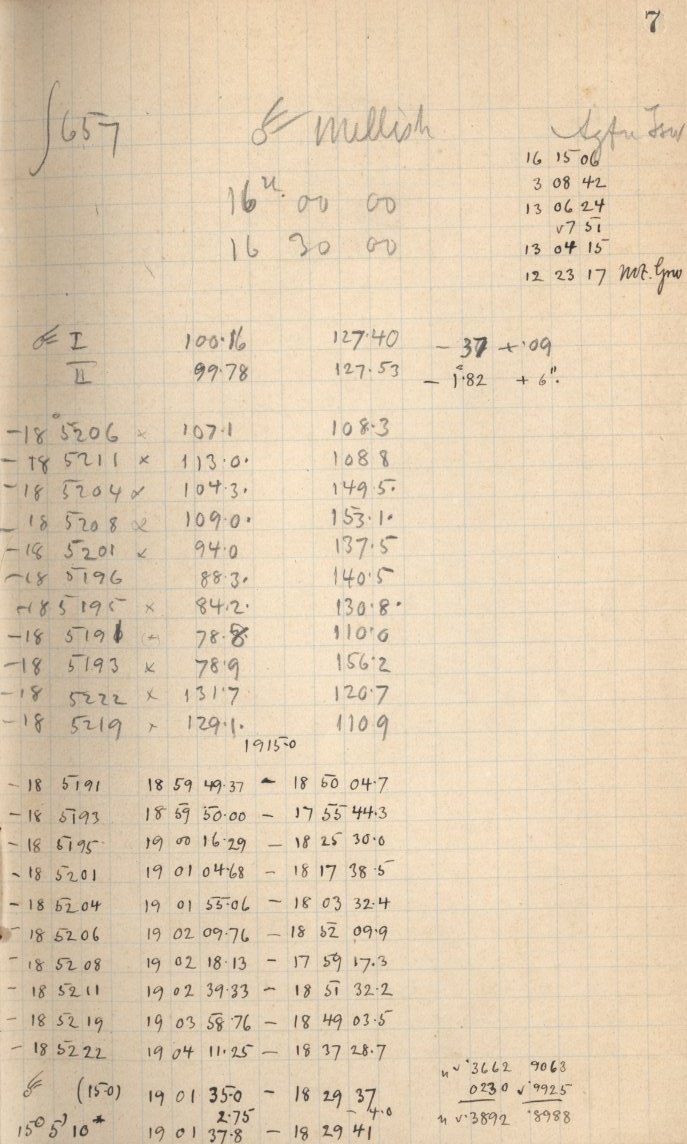 7
∫657 ☄ Mellish
16 15 06
3 08 42
16 00 00 13 06 24
v7 51
16 30 00 13 04 15
12 23 17
☄ I 100.16 127.40 - 37 + .09
II 99.78 127.53 - 1.82 + 6".
-18° 5206 x 107.1 108.3
-18 5211 x 113.0. 108 8
-18 5204 x 104.3. 149.5.
-18 5208 x 109.0. 153.1.
-18 5201 x 94.0 137.5
-18 5196 88.3. 140.5
-18 5195 x 84.2. 130.8.
-18 5191 78.8 110.0
-18 5193 x 78.9 156.2
-18 5222 x 131.7 120.7
-18 5219 x 129.1. 110.9
1915.0
-18 5191 18 59 49.37 - 18 50 04.7
-18 5193 18 59 50.00 - 17 55 44.3
-18 5195 19 00 16.29 - 18 25 30.0
-18 5201 19 01 04.68 - 18 17 38.5
-18 5204 19 01 55.06 - 18 03 32.4
-18 5206 19 02 09.76 - 18 52 09.9
-18 5208 19 02 18.13 - 17 59 17.3
-18 5211 19 02 39.33 - 18 51 32.2
-18 5219 19 03 58.76 - 18 49 03.5
-18 5222 19 04 11.25 - 18 37 28.7
n v.3662 9063
☄ (15.0) 19 01 35.0 - 18 29 37 0230 v.9925
2.75 - 4.0 n v.3892 .8988
15 5 10 19 01 37.8 - 18 29 41